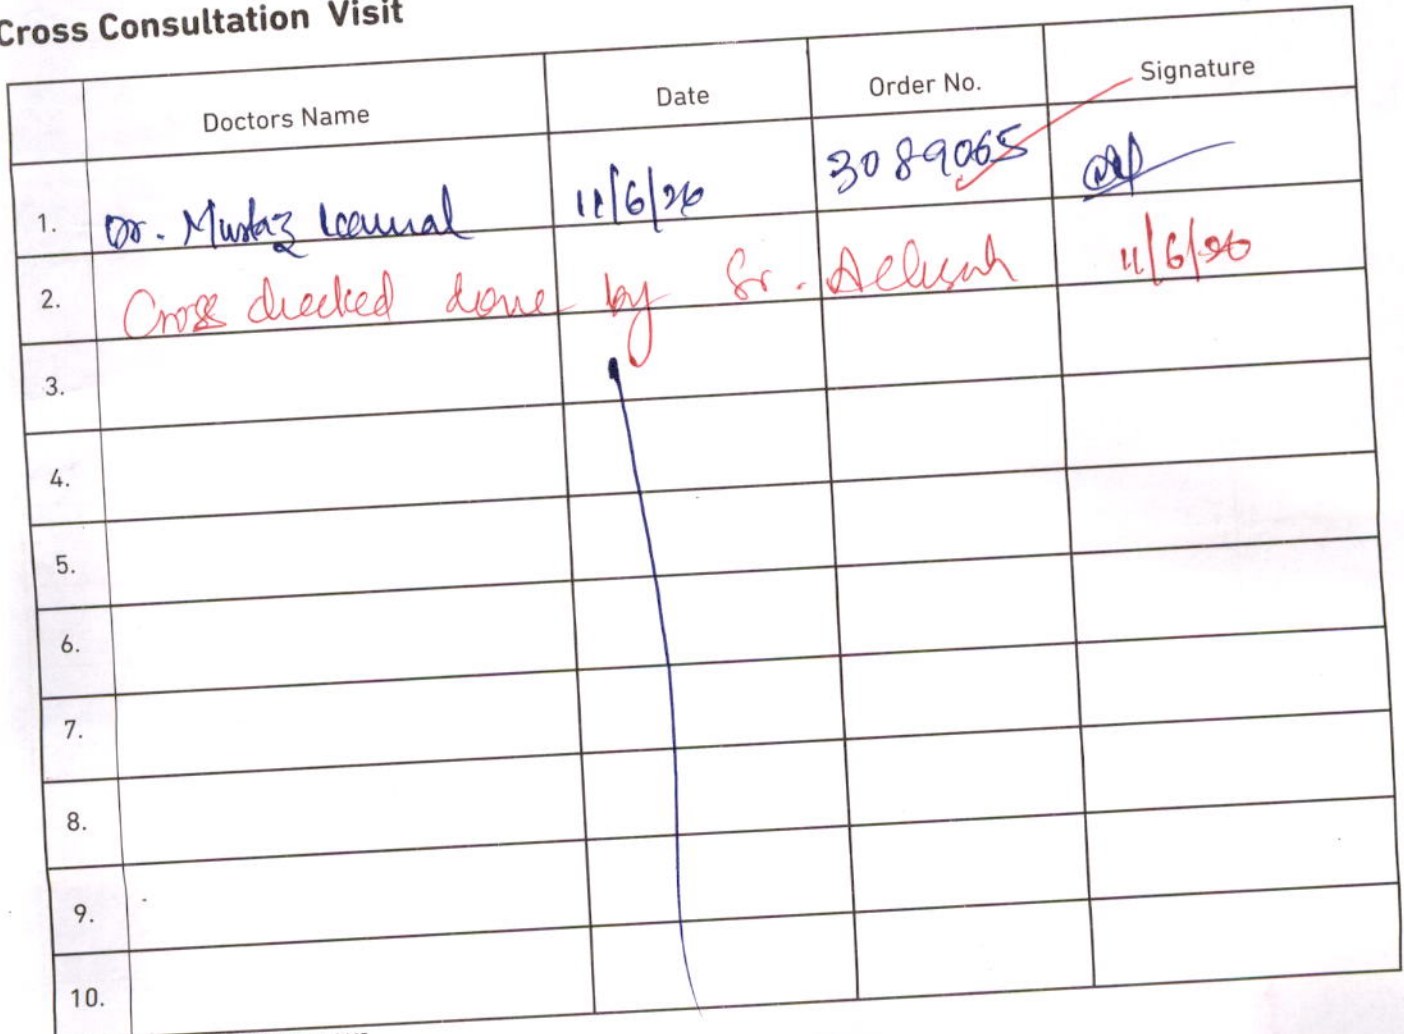 Cross Consultation Visit
Doctors Name Date Order No. Signature
1. Dr. Mustaz Kamal 11/6/26 3089065
2. Cross checked done by Sr. 11/6/26
3.
4.
5.
6.
7.
8.
9.
10.